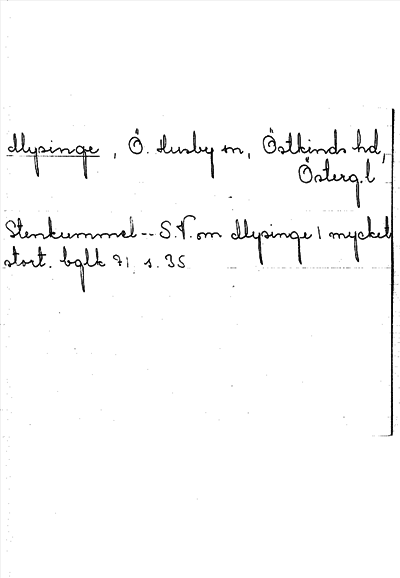 Mysinge, Ö. Husby sn, Östkinds hd,
Österg. l
Stenkummel -- S.V. om Mysinge / mycket
stort. bglk 71 s. 35